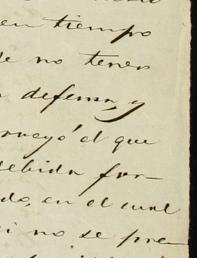 en tiempo
de no tener
defensa, y
el que
debida for-
do, en el cual
si no se pre-